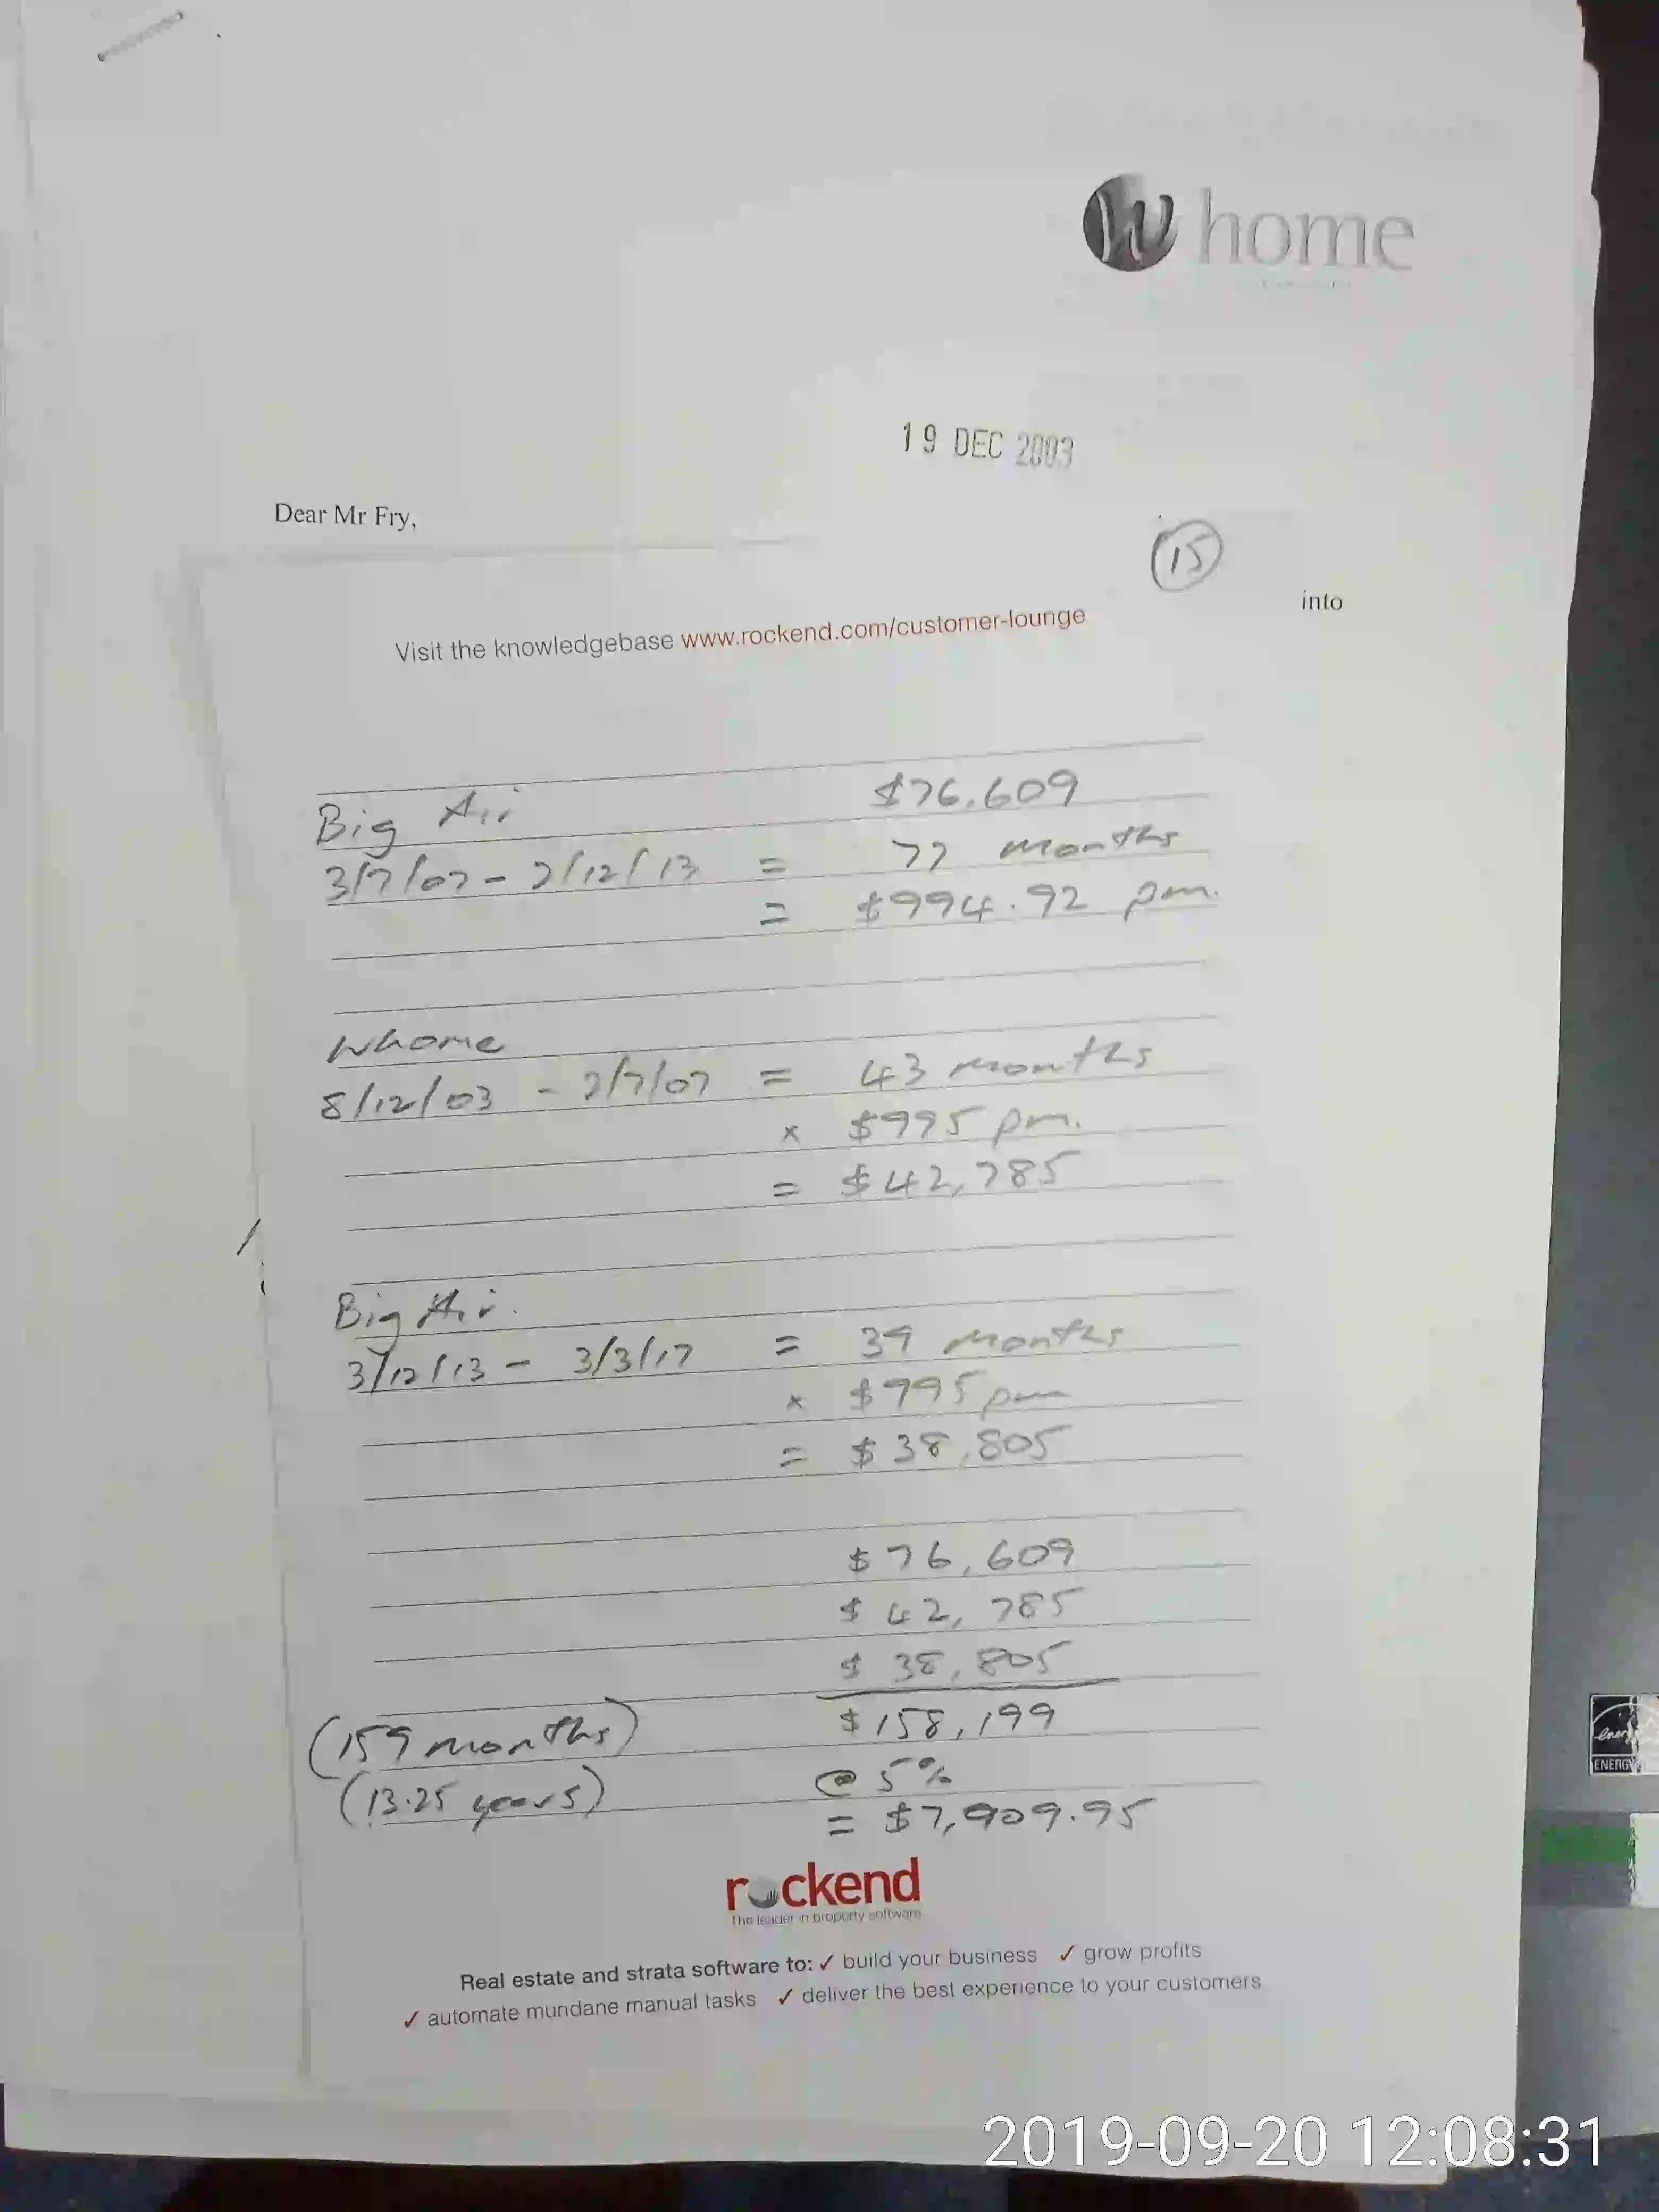 W home
19 DEC 2003
Dear Mr Fry,
15
into
Visit the knowledgebase www.rockend.com/customer-lounge
Big Air $76,609
3/7/07 - 2/12/13 = 77 months
= $994.92 pm.
Whome
8/12/03 - 2/7/07 = 43 months
x $995 pm.
= $42,785
Big Air.
3/12/13 - 3/3/17 = 39 months
x $995 pm
= $38,805
$76,609
$42,785
$38,805
(159 months) $158,199
(13.25 years) @ 5%
= $7,909.95
rockend
The leader in property software
Real estate and strata software to: ✓ build your business ✓ grow profits
✓ automate mundane manual tasks ✓ deliver the best experience to your customers
energy
ENERGY
2019-09-20 12:08:31